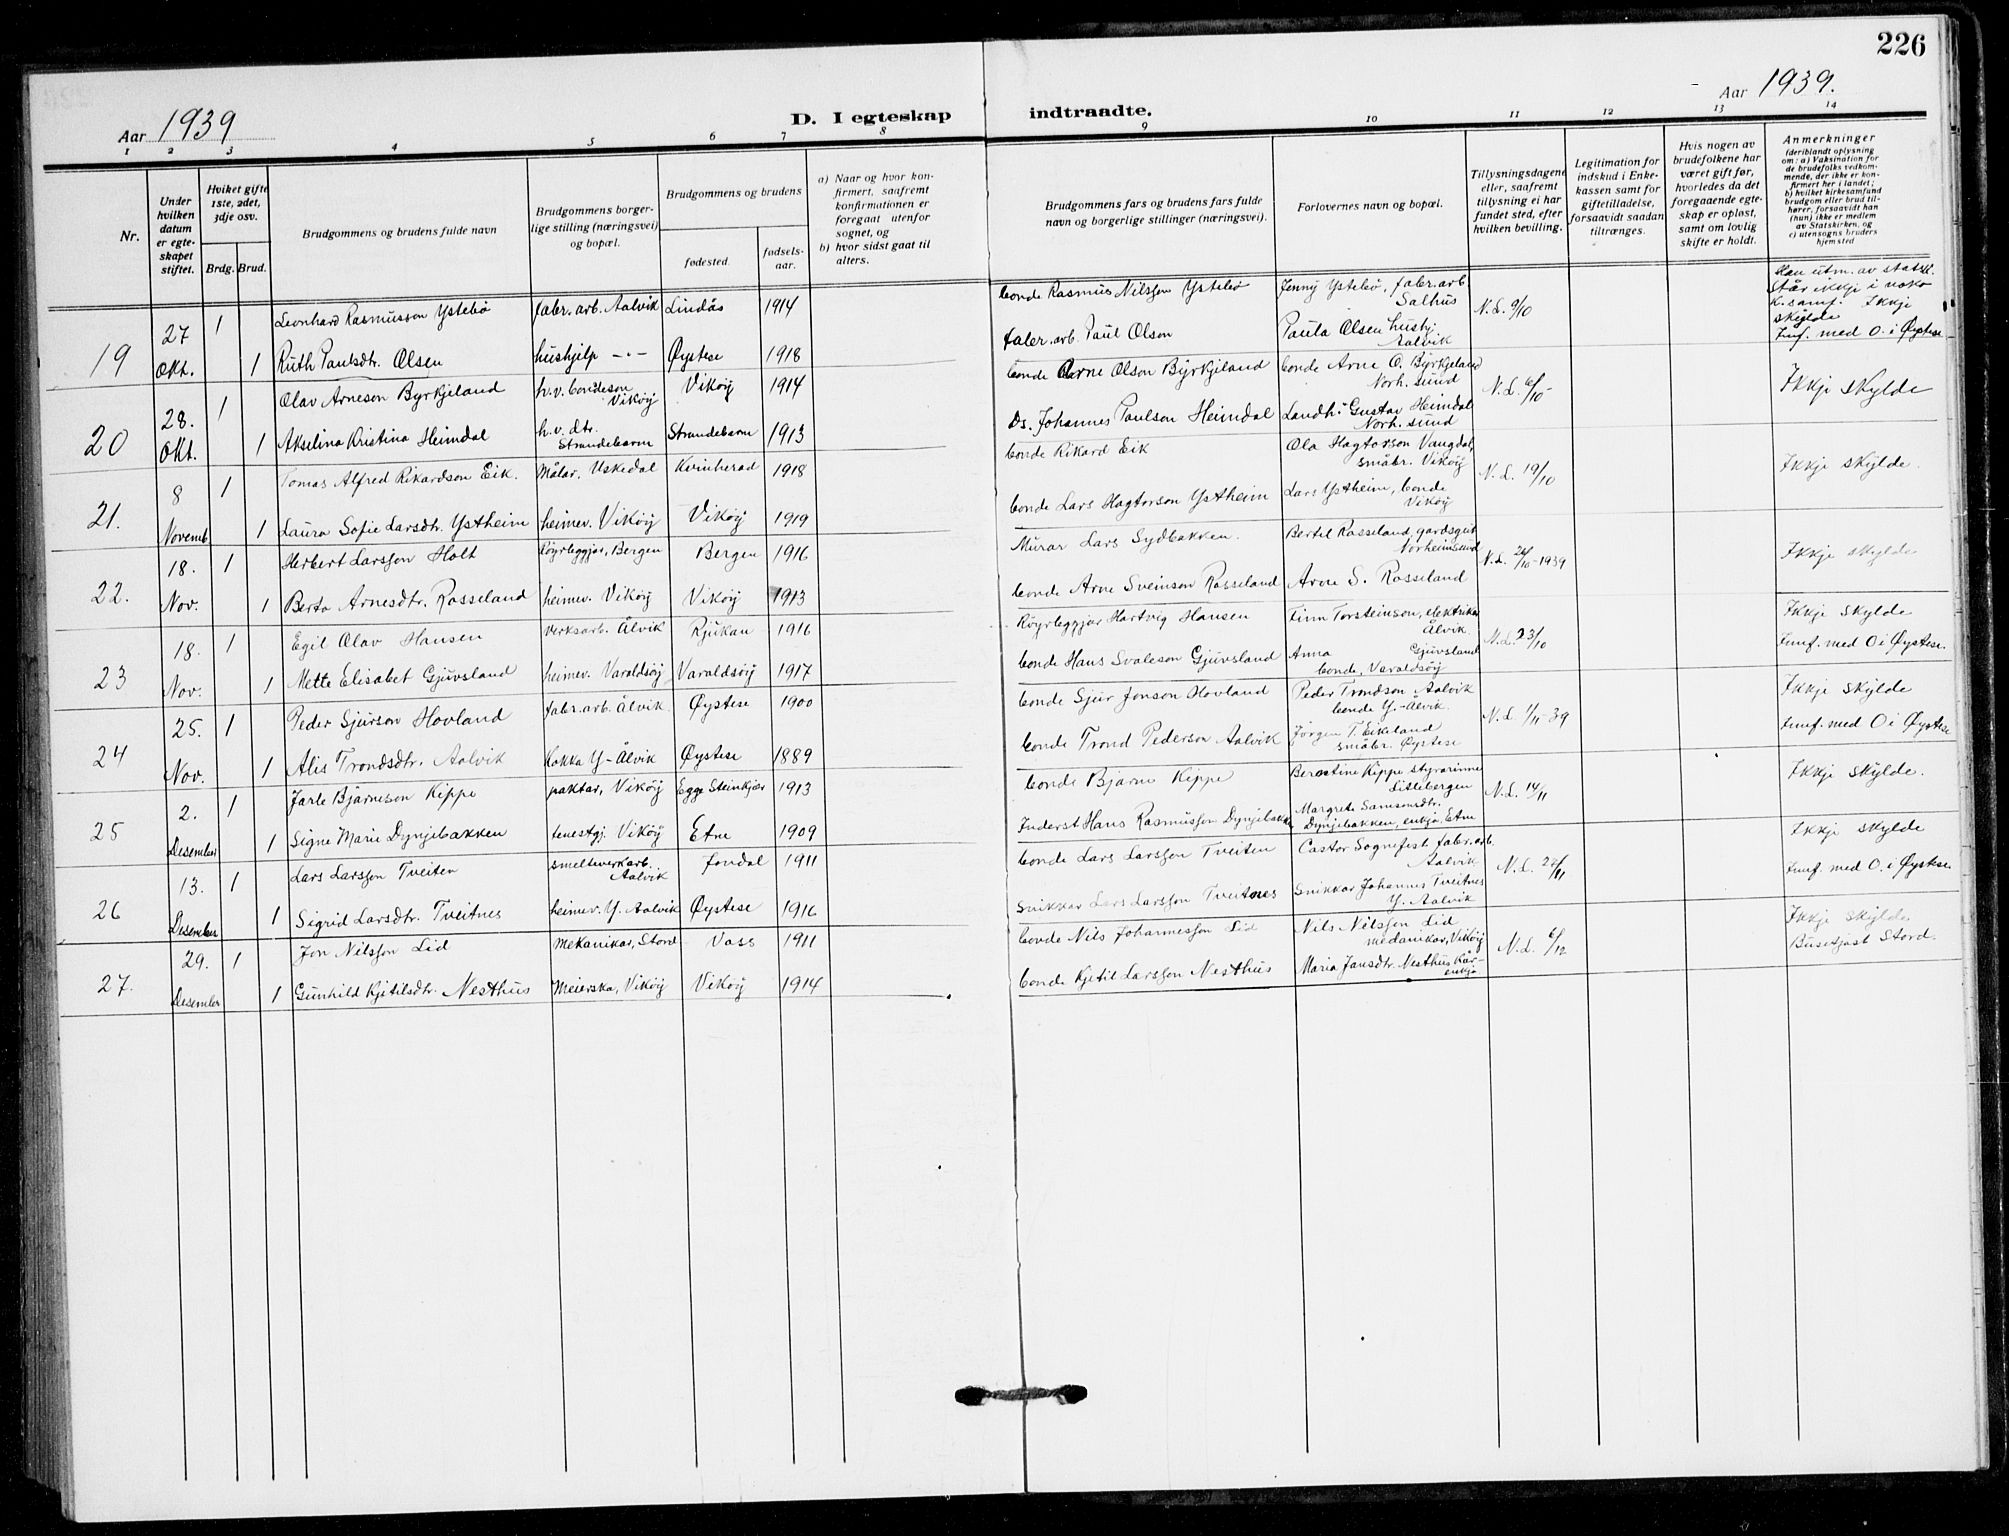 226
Aar 1939
D. I egteskap indtraadte.
Aar 1939.
1 2 3 4 5 6 7 8 9 10 11 12 13 14
Nr.
Under hvilken datum er egteskapet stiftet.
Hviket gifte 1ste, 2det, 3dje osv.
Brdg. Brud.
Brudgommens og brudens fulde navn
Brudgommens borgerlige stilling (næringsvei) og bopæl.
Brudgommens og brudens
fødested.
fødselsaar.
a) Naar og hvor konfirmert, saafremt konfirmationen er foregaat utenfor sognet, og
b) hvor sidst gaat til alters.
Brudgommens fars og brudens fars fulde navn og borgerlige stillinger (næringsvei).
Forlovernes navn og bopæl.
Tillysningsdagene eller, saafremt tillysning ei har fundet sted, efter hvilken bevilling.
Legitimation for indskud i Enkekassen samt for giftetilladelse, forsaavidt saadan tiltrænges.
Hvis nogen av brudefolkene har været gift før, hvorledes da det foregaaende egteskap er opløst, samt om lovlig skifte er holdt.
Anmerkninger
(deriblandt oplysning om: a) Vaksination for de brudefolks vedkommende, der ikke er konfirmert her i landet; b) hvilket kirkesamfund brudgom eller brud tilhører, forsaavidt han (hun) ikke er medlem av Statskirken, og c) utensogns bruders hjemsted
19 27 Okt. 1 Leonhard Rasmusson Ystebø fabr. arb. Aalvik Lindås 1914 bonde Rasmus Nilsson Ystebø Jenny Ystebø, fabr. arb. Salhus N.L. 9/10 Han utm. av statsk. Står ikkje i noko k.samf. Ikkje skylde
1 Ruth Paulsdtr. Olsen hushjelp -"- Øystese 1918 fabr. arb. Paul Olson Paula Olsen hushj. Aalvik Innf. med O. i Øystese
20 28. Okt. 1 Olav Arneson Byrkjeland h.v. bondeson Vikøy Vikøy 1914 bonde Arne Olson Byrkjeland bonde Arne O. Byrkjeland Norh.sund N.L. 6/10- Ikkje skylde
1 Akselina Kristina Heimdal h.v. dtr. Strandebarm Strandebarm 1913 Ds. Johannes Paulson Heimdal Landh. Gustav Heimdal Norh.sund
21. 8 Novemb 1 Tomas Alfred Rikardson Eik. Målar, Uskedal Kvinherad 1918 bonde Rikard Eik Ola Hagtorson Vangdal, småbr. Vikøy N.L. 19/10 Ikkje skylde.
1 Laura Sofie Larsdtr. Ystheim heimev. Vikøy Vikøy 1919 bonde Lars Hagtorson Ystheim Lars Ystheim, bonde Vikøy
22. 18. Nov. 1 Herbert Larsson Holt Røyrleggjar, Bergen Bergen 1916 Murar Lars Sydbakken. Bertel Rosseland, gardsgut Norheimsund N.L. 26/10-1939 Ikkje skylde
1 Berta Arnesdtr. Rosseland heimev. Vikøy Vikøy 1913 bonde Arne Sveinson Rosseland Arne S. Rosseland
23 18. Nov. 1 Egil Olav Hansen Verksarb. Ålvik Rjukan 1916 Røyrleggjar Hartvig Hansen Finn Torsteinson, elektrikar Ålvik. N.L. 23/10 Ikkje skylde
1 Mette Elisabet Gjuvsland heimev. Varaldsøy Varaldsøy 1917 bonde Hans Svaleson Gjuvsland Anna Gjuvsland bonde, Varaldsøy Innf. med O i Øystese.
24 25. Nov. 1 Peder Sjurson Hovland fabr. arb. Ålvik Øystese 1900 bonde Sjur Jonson Hovland Peder Trondson Aalvik bonde Y.-Ålvik. N.L. 1/11-39 Ikkje skylde
1 Alis Trondsdtr. Aalvik Kokka Y-Ålvik Øystese 1889 bonde Trond Pederson Aalvik Jørgen T. Eikeland småbr. Øystese Innf. med O i Øystese
25 2. Desember 1 Jarle Bjarneson Kippe paktar, Vikøy Egge Steinkjer 1913 bonde Bjarne Kippe Bergstine Kippe styrarinne Littlebergen N.L. 14/11 Ikkje skylde.
1 Signe Marie Dynjebakken tenestgj. Vikøy Etne 1909 Inderst Hans Rasmusson Dynjebakken Margrete Samsonsdtr. Dynjebakken, enkja, Etne
26 13. Desember 1 Lars Larsson Tveiten smelteverkarb. Aalvik Jondal 1911 bonde Lars Larsson Tveiten Castor Sognefest fabr. arb. Aalvik N.L. 22/11 Ikkje skylde
1 Sigrid Larsdtr. Tveitnes heimev. Y. Aalvik Øystese 1916 Snikkar Lars Larsson Tveitnes Snikkar Johannes Tveitnes Y. Aalvik Innf. med O. i Øystese
27. 29. Desember 1 Jon Nilsson Lid Mekanikar, Stord Voss 1911 bonde Nils Johannesson Lid Nils Nilsson Lid mekanikar, Vikøy N.L. 6/12 Ikkje skylde
1 Gunhild Kjetilsdtr. Nesthus Meierska, Vikøy Vikøy 1914 bonde Kjetil Larsson Nesthus Maria Jansdtr. Nesthus kår-enkja Busetjast Stord.